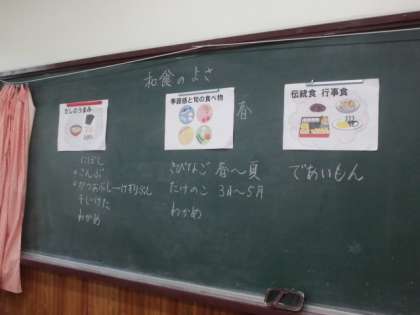 和食のよさ
だしのうまみ
にぼし
こんぶ
かつおぶし—けずりぶし
干しいたけ
わかめ
季節感と旬の食べ物
春
きびなご 春〜夏
たけのこ 3月〜5月
わかめ
伝統食 行事食
であいもん